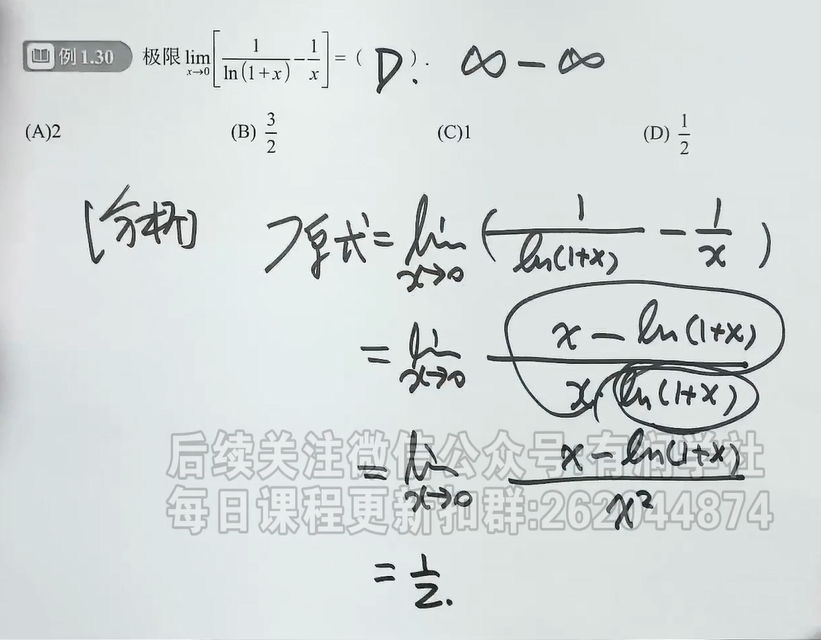 例 1.30 极限 lim x→0 [ 1/ln(1+x) - 1/x ] = ( D. ). ∞ - ∞
(A)2 (B) 3/2 (C)1 (D) 1/2
[分析] 原式 = lim x→0 ( 1/ln(1+x) - 1/x )
= lim x→0 x - ln(1+x) / x·ln(1+x)
= lim x→0 x - ln(1+x) / x²
后续关注微信公众号:有润学社
每日课程更新扣群:262 44874
= 1/2.